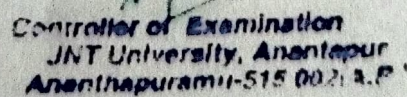 Controller of Examination
JNT University, Anantapur
Ananthapuramu-515 002, A.P